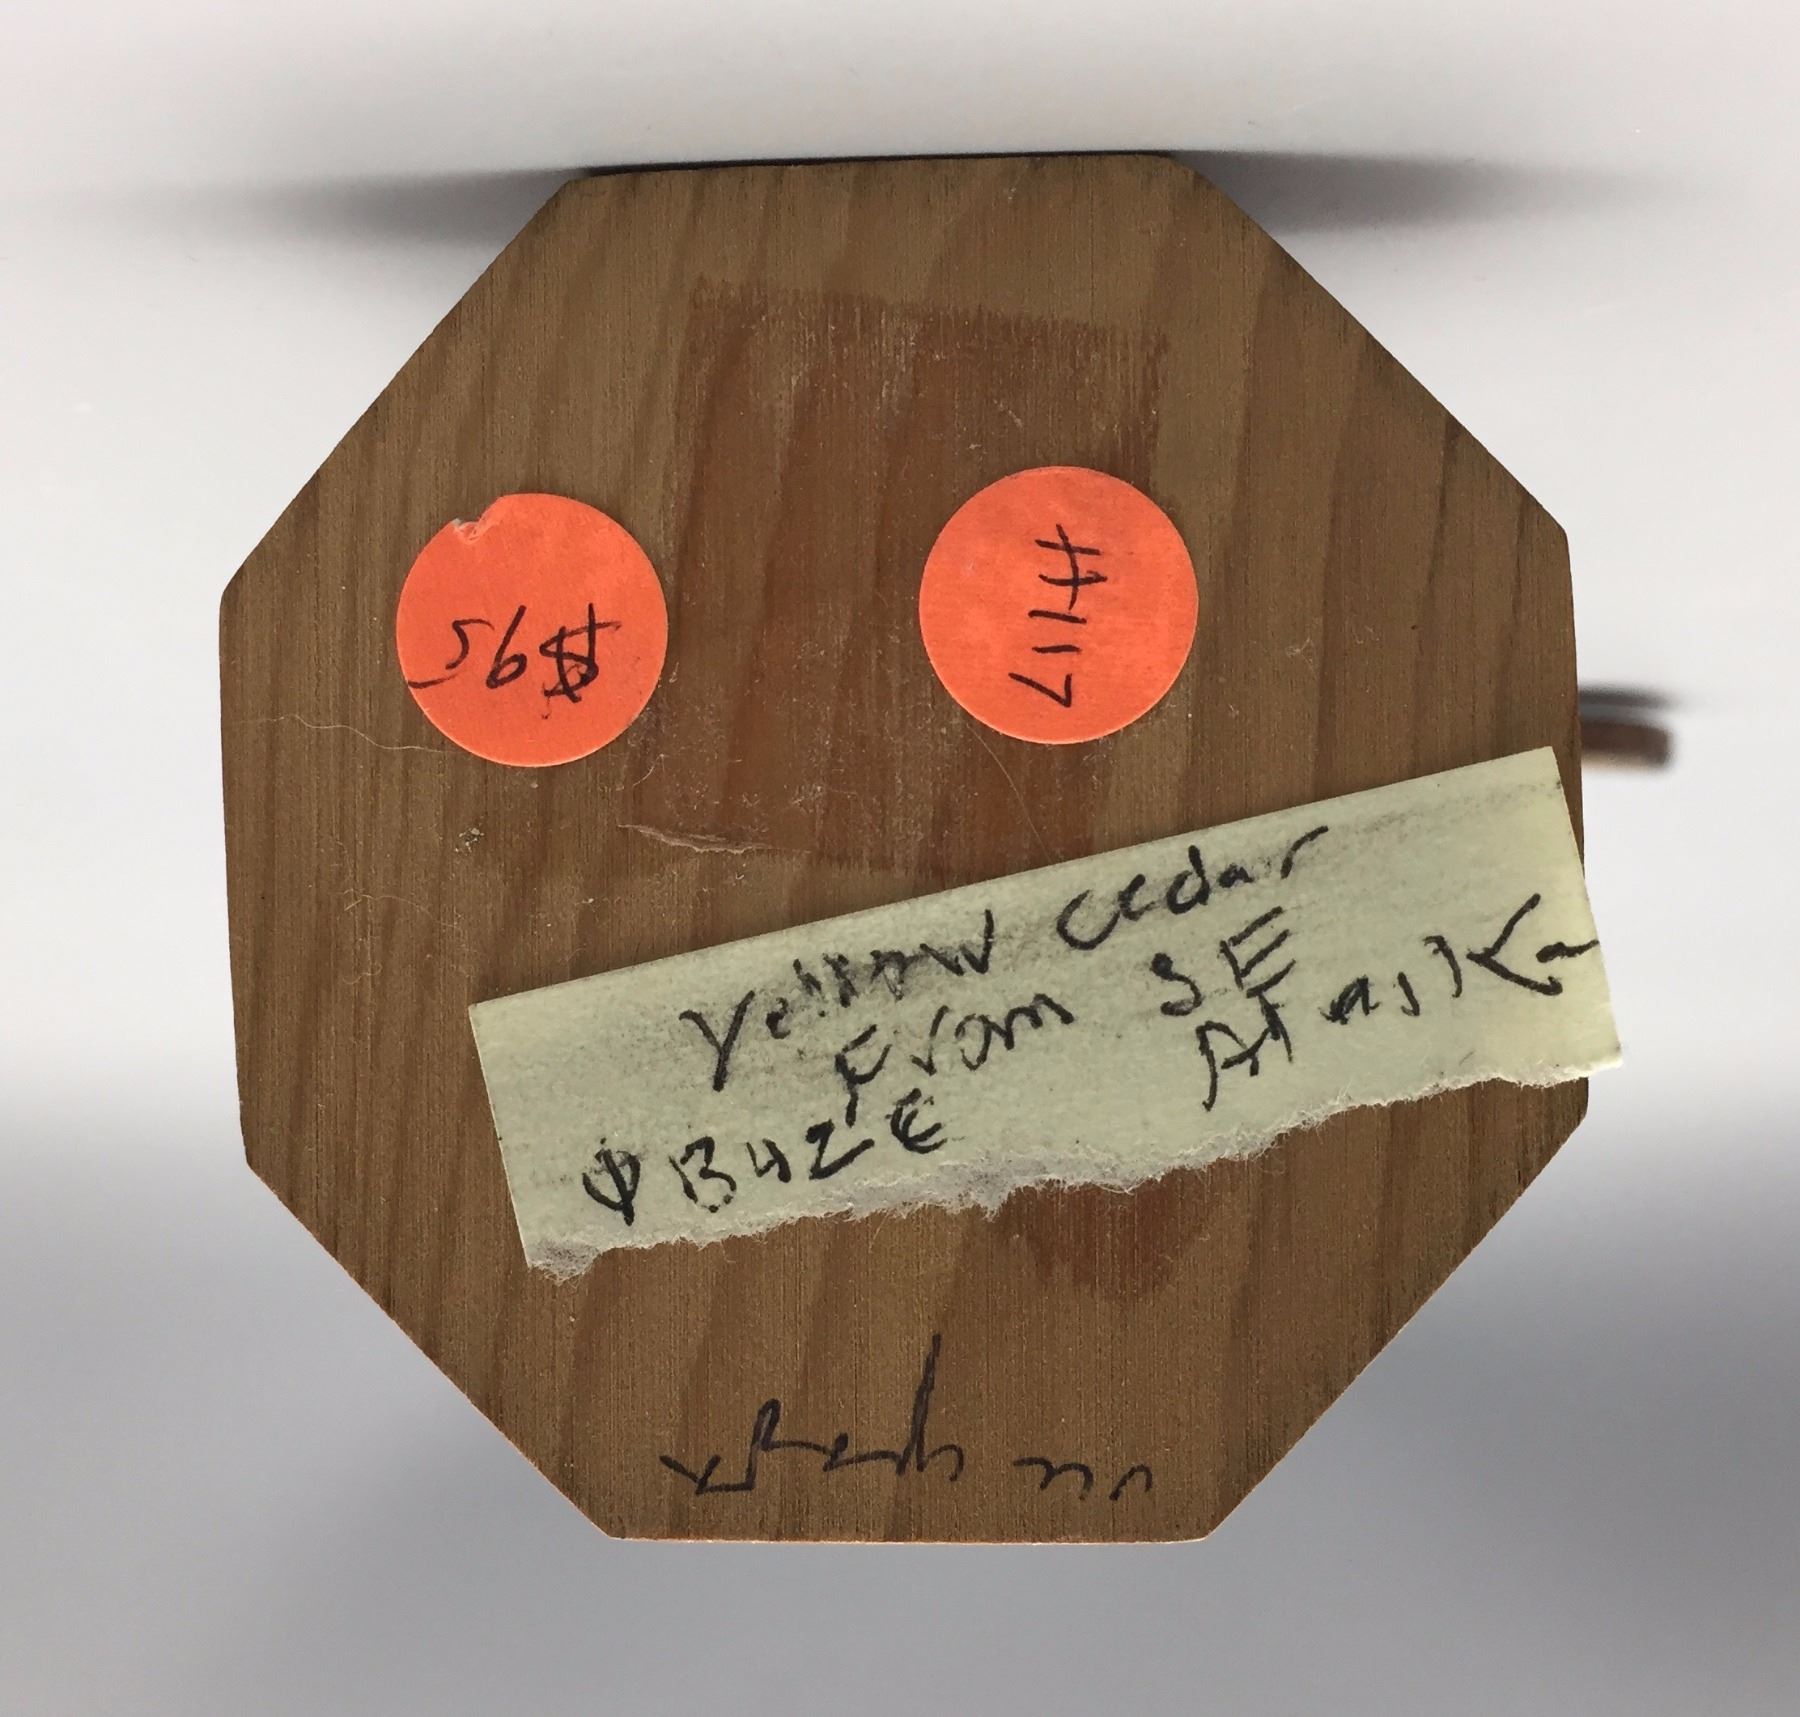 $95
#117
Yellow cedar
From SE
Alaska
BuzE